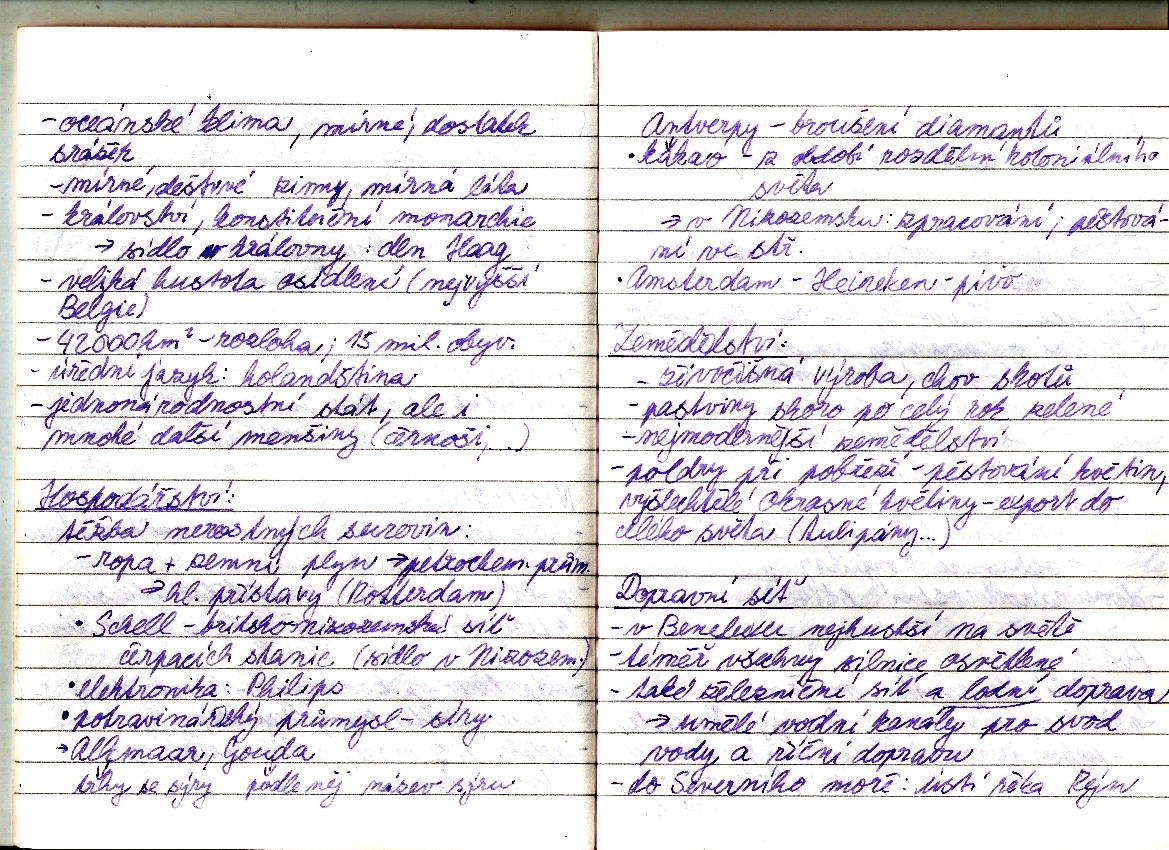 - oceánské klima, mírné, dostatek
srážek
- mírné, deštivé zimy, mírná léta
- království, konstituční monarchie
→ sídlo královny: den Haag
- veliká hustota osídlení (nejvyšší
Belgie)
- 42000km² - rozloha; 15 mil. obyv.
- úřední jazyk: holandština
- jednonárodnostní stát, ale i
mnohé další menšiny (černoši,...)
Hospodářství:
těžba nerostných surovin:
- ropa + zemní plyn → petrochem. prům.
→ hl. přístavy (Rotterdam)
• Schell - britskonizozemská síť
čerpacích stanic (sídlo v Nizozem.)
• elektronika: Philips
• potravinářský průmysl - sýry
→ Alkmaar, Gouda
trhy se sýry podle něj název sýru
Antverpy - broušení diamantů
• kakao - z období rozdělení koloniálního
světa
→ v Nizozemsku: zpracování; pěstová-
ní ve stř.
• Amsterdam - Heineken - pivo
Zemědělství:
- živočišná výroba, chov skotů
- pastviny skoro po celý rok zelené
- nejmodernější zemědělství
- poldry při pobřeží - pěstování květin,
vyšlechtělé okrasné květiny - export do
celého světa (tulipány...)
Dopravní síť
- v Beneluxu nejhustší na světě
- téměř všechny silnice osvětlené
- také železniční síť a lodní doprava
→ umělé vodní kanály pro svod
vody a říční dopravu
- do Severního moře: ústí řeka Rýn